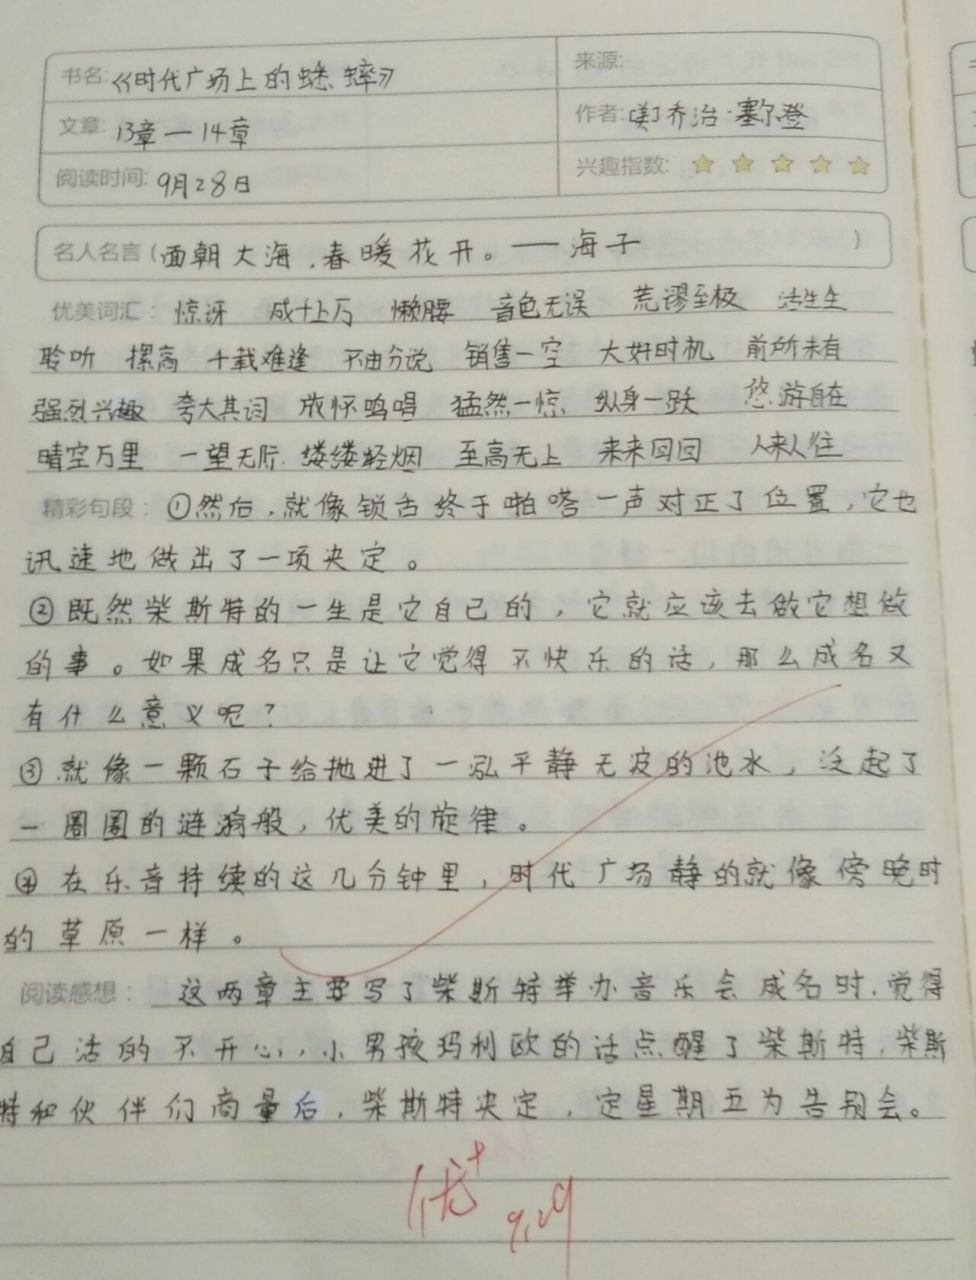 书名:《时代广场上的蟋蟀》
来源:
文章: 13章—14章
作者:(美)乔治·塞尔登
阅读时间: 9月28日
兴趣指数:
名人名言(面朝大海,春暖花开。——海子)
优美词汇: 惊讶 成千上万 懒腰 音色无误 荒谬至极 活生生
聆听 摞高 千载难逢 不由分说 销售一空 大好时机 前所未有
强烈兴趣 夸大其词 放怀鸣唱 猛然一惊 纵身一跃 悠游自在
晴空万里 一望无际 缕缕轻烟 至高无上 来来回回 人来人往
精彩句段: ①然后,就像锁舌终于啪嗒一声对正了位置,它也
讯速地做出了一项决定。
②既然柴斯特的一生是它自己的,它就应该去做它想做
的事。如果成名只是让它觉得不快乐的话,那么成名又
有什么意义呢?
③就像一颗石子给抛进了一泓平静无波的池水,泛起了
一圈圈的涟漪般,优美的旋律。
④在乐音持续的这几分钟里,时代广场静的就像傍晚时
的草原一样。
阅读感想: 这两章主要写了柴斯特举办音乐会成名时,觉得
自己活的不开心,小男孩玛利欧的话点醒了柴斯特,柴斯
特和伙伴们商量后,柴斯特决定,定星期五为告别会。
优+
9.29